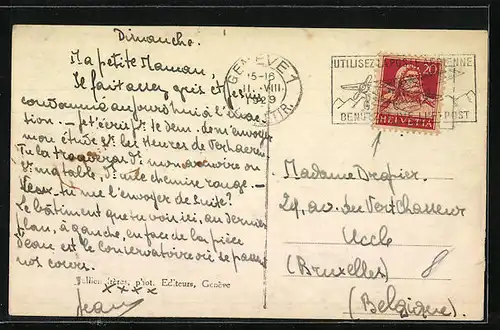 Dimanche.
Ma petite Maman,
Il fait assez gris et je
condamne aujourd'hui à l'
tion. — Je t'écris pr te dem. de m'envoyer
mon étude sr les Heures de Verhaeren
Tu la trouveras ds mon armoire ou
sr ma table, ds une chemise rouge. —
Veux-tu me l'envoyer de suite?
Le bâtiment que tu vois ici, au dernier
plan, à gauche, en face de la pièce
d'eau est le conservatoire où se passent
nos cours.
xxxx
Jean
Jullien frères, phot. Editeurs, Genève
GENÈVE 1
15-16
11. VIII
1929
UTILISEZ LA POSTE AÉRIENNE
BENUTZET DIE LUFTPOST
20
HELVETIA
Madame
29, av. du Vert Chasseur
Uccle 8
(Bruxelles)
(Belgique)